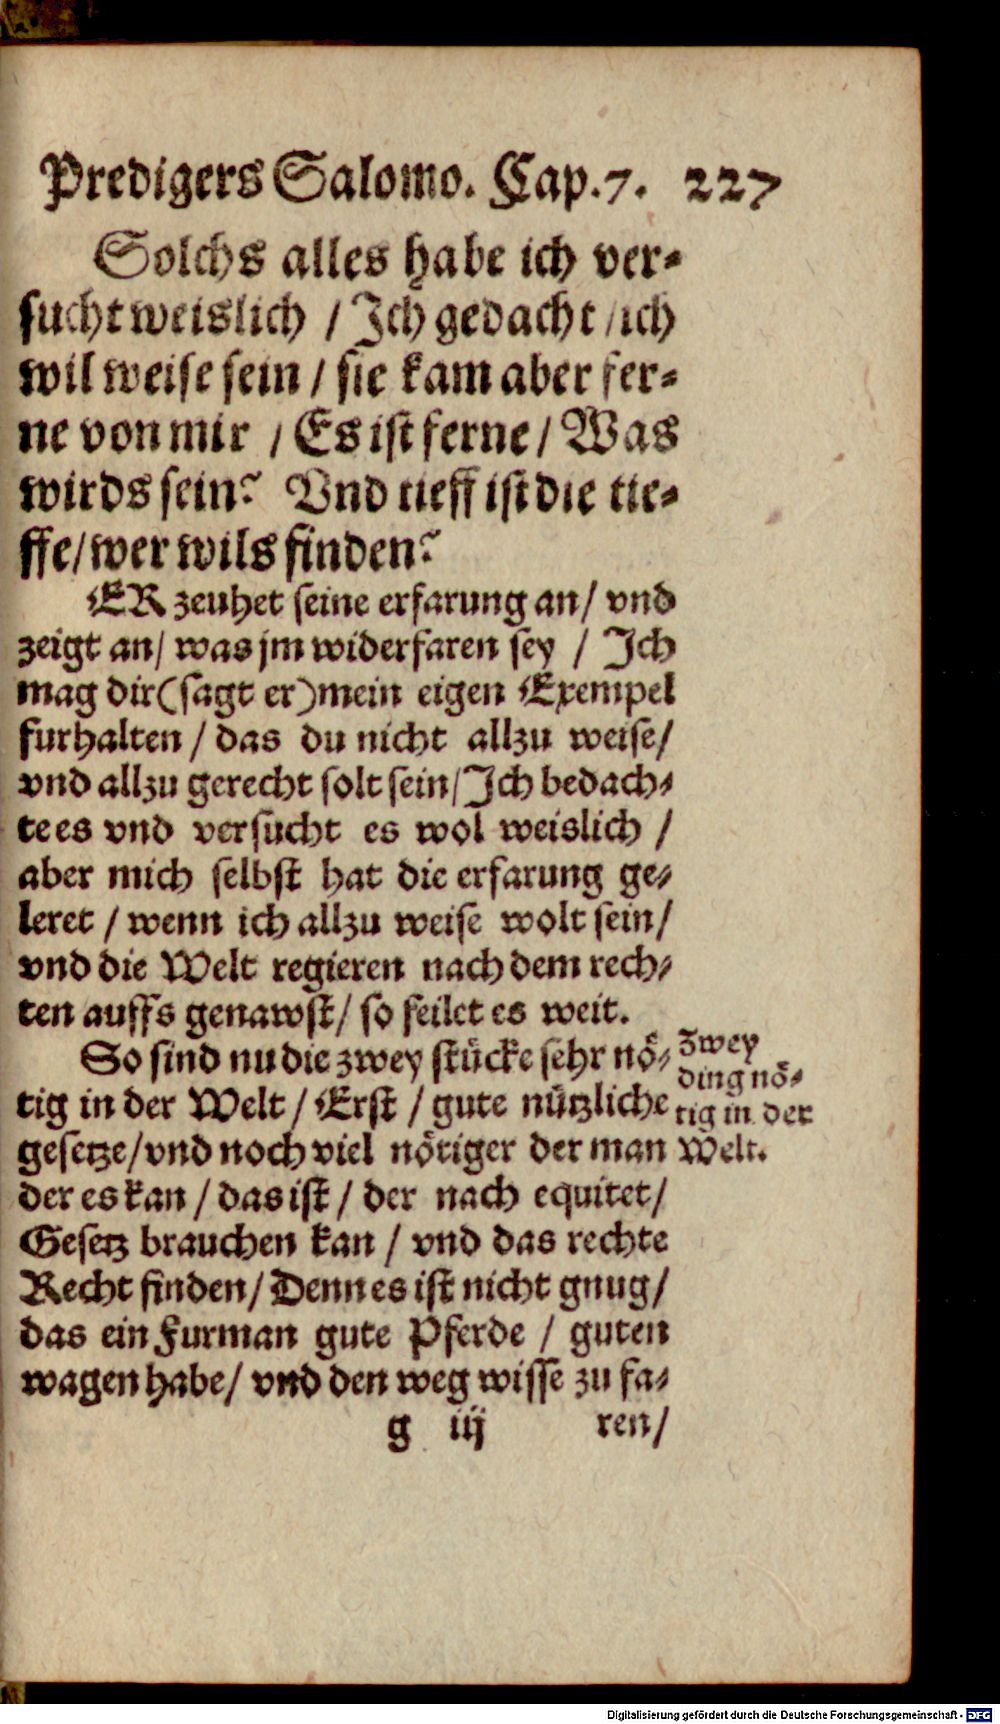 Predigers Salomo. Cap. 7. 227
Solchs alles habe ich ver⸗
sucht weislich / Ich gedacht / ich
wil weise sein / sie kam aber fer⸗
ne von mir / Es ist ferne / Was
wirds sein? Vnd tieff ist die tie⸗
ffe / wer wils finden?
ER zeuhet seine erfarung an / vnd
zeigt an / was jm widerfaren sey / Ich
mag dir (sagt er) mein eigen Exempel
furhalten / das du nicht allzu weise /
vnd allzu gerecht solt sein / Ich bedach⸗
te es vnd versucht es wol weislich /
aber mich selbst hat die erfarung ge⸗
leret / wenn ich allzu weise wolt sein /
vnd die Welt regieren nach dem rech⸗
ten auffs genawst / so feilet es weit.
So sind nu die zwey stücke sehr nö⸗
tig in der Welt / Erst / gute nützliche
gesetze / vnd noch viel nötiger der man
der es kan / das ist / der nach equitet /
Gesetz brauchen kan / vnd das rechte
Recht finden / Denn es ist nicht gnug /
das ein Furman gute Pferde / guten
wagen habe / vnd den weg wisse zu fa⸗
g iij ren /
Zwey
ding nö⸗
tig in der
Welt.
Digitalisierung gefördert durch die Deutsche Forschungsgemeinschaft - DFG